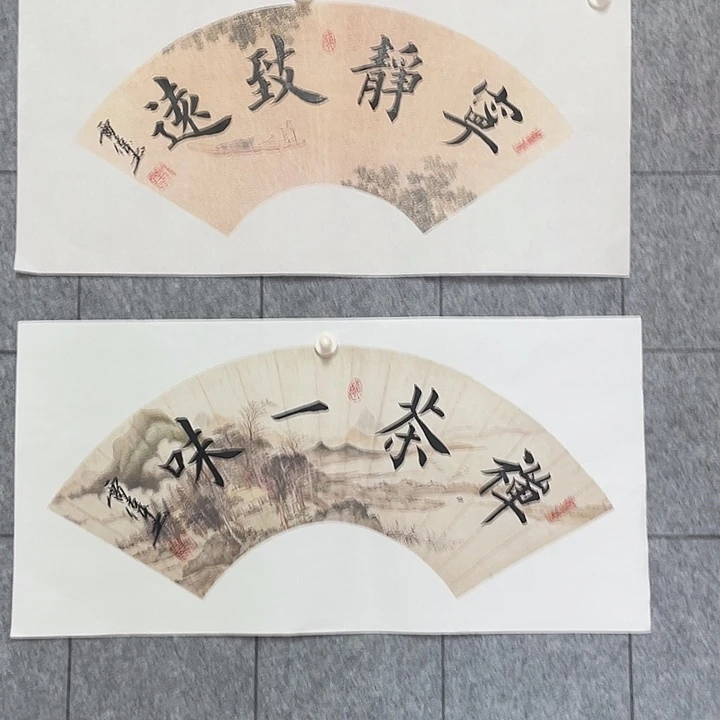 寧靜致遠
禪茶一味